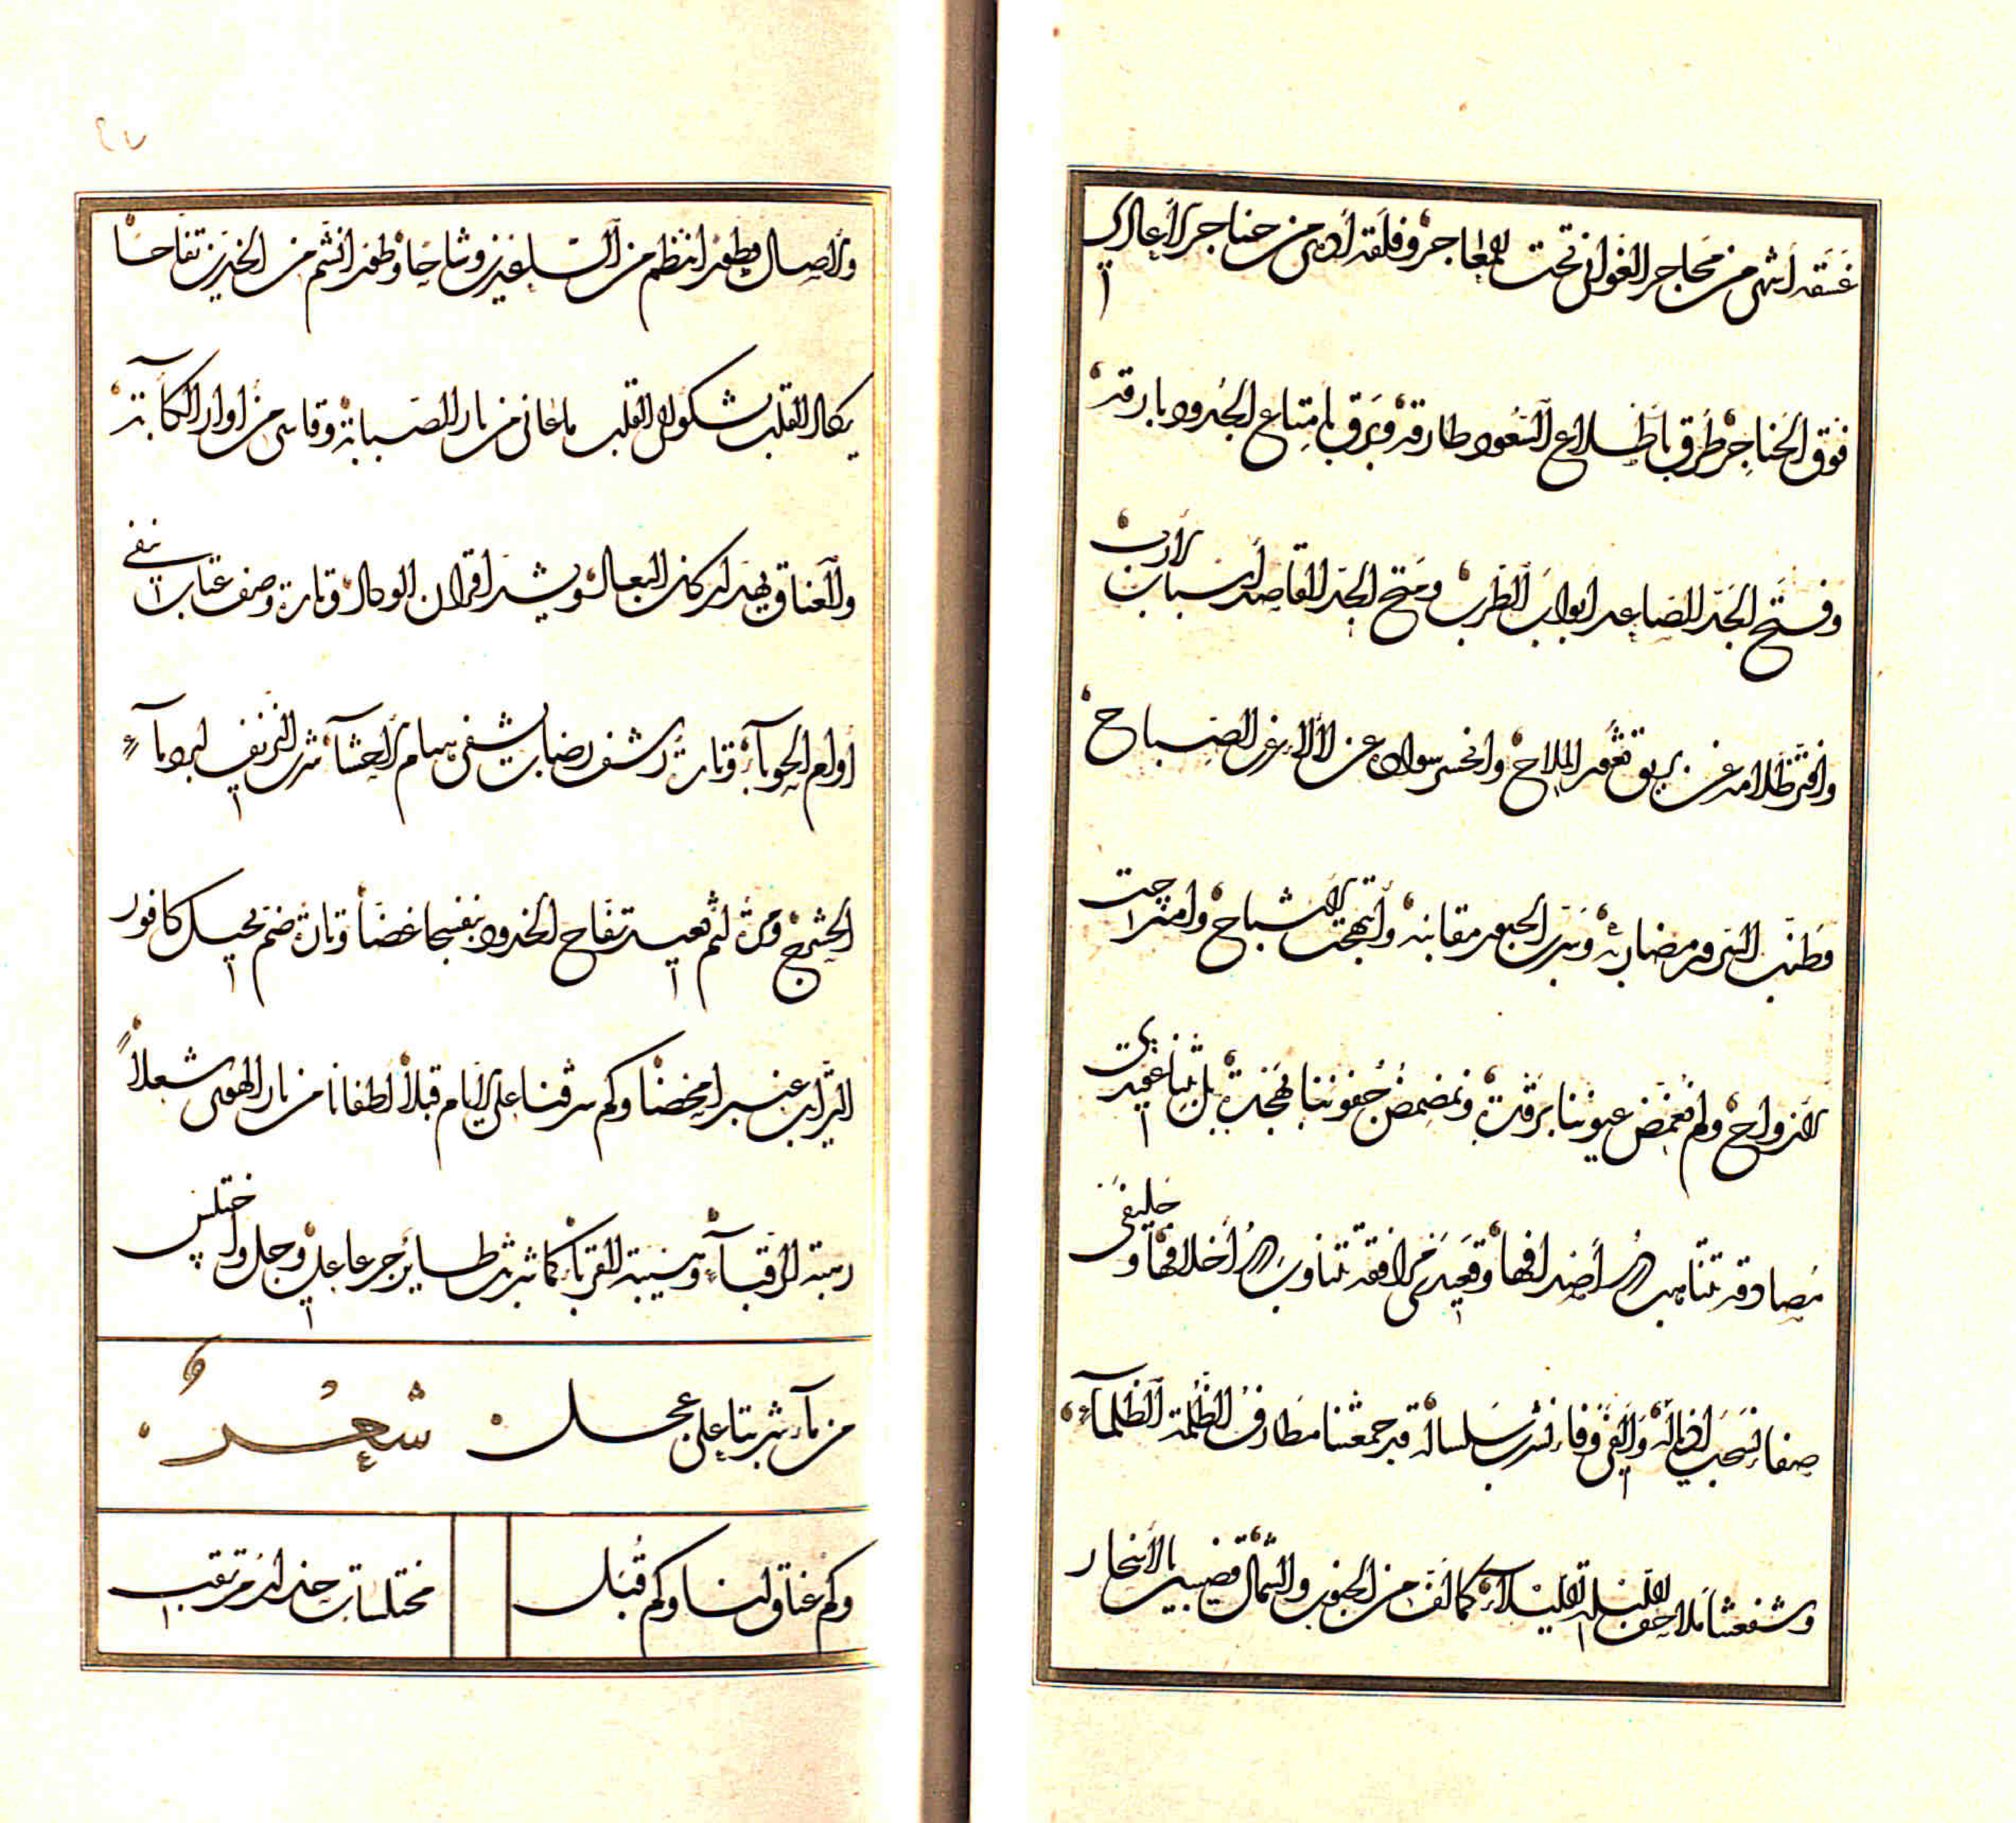 غسقه أشهى من محاجر الغواني تحت المعاجر وفلقه أدهى من حناجر الأعادي
فوق الخناجر طرق باطلاع السعود طارقه وبرق بامتناع الجدود بارقه
وفتح الجد الصاعد أبواب الطرب ومنح الجد القاصد أسباب الأرب
وافتر ظلامه عن بريق ثغور الملاح وانحسر سواده عن لألاء غرر الصباح
وطنب السرور مضاربه وسرب الحبور مقانبه وابتهجت الأشباح وامتزجت
الأرواح ولم تغمض عيوننا برقدة ونمضمض جفوننا بهجدة بل بتنا عقيدي
مصادقة تتناهب أصدافها وقعيدي مرافقة تتناوب أخلافها وحليفي
صفاء نسحب أذياله وأليفي وفاء نشرب سلساله قد جمعتنا مطارف الظلمة الظلماء
وشفعتنا ملاحف الليلة الليلاء كما لف من الجنوب والشمال قضيبين بالأسحار
٤٧
والصال فطورا نتظم من الساعدين وشاحا وطورا نشم من الخدين تفاحا
يكاد القلب يشكو إلى القلب ما عانى من نار الصبابة وقاسى من أوار الكآبة
والعناق يهد أركان البعاد ويشد أقران الوداد وتارة وصف عتاب ينفي
أوام الحوباء وتارة رشف رضاب يشفي هيام الأحشاء شرب النزيف لبرد ماء
الحشرج ومرة لثم يعيد تفاح الخدود بنفسجا غضا وتارة ضم يحيل كافور
الترائب عنبرا محضا وكم سرقنا على الأيام قبلا لطفائنا من نار الهوى شعلا
رهبة الرقباء وهيبة القرباء كما شربت طائر جرعا على وجل واختلس
من ماء شربتا على عجل شعر
وكم عناق لنا وكم قبل مختلسات حذار مرتقب